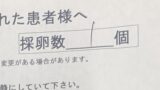 れた患者様へ
採卵数 1 個
変更がある場合があります。
静にしていて下さい。